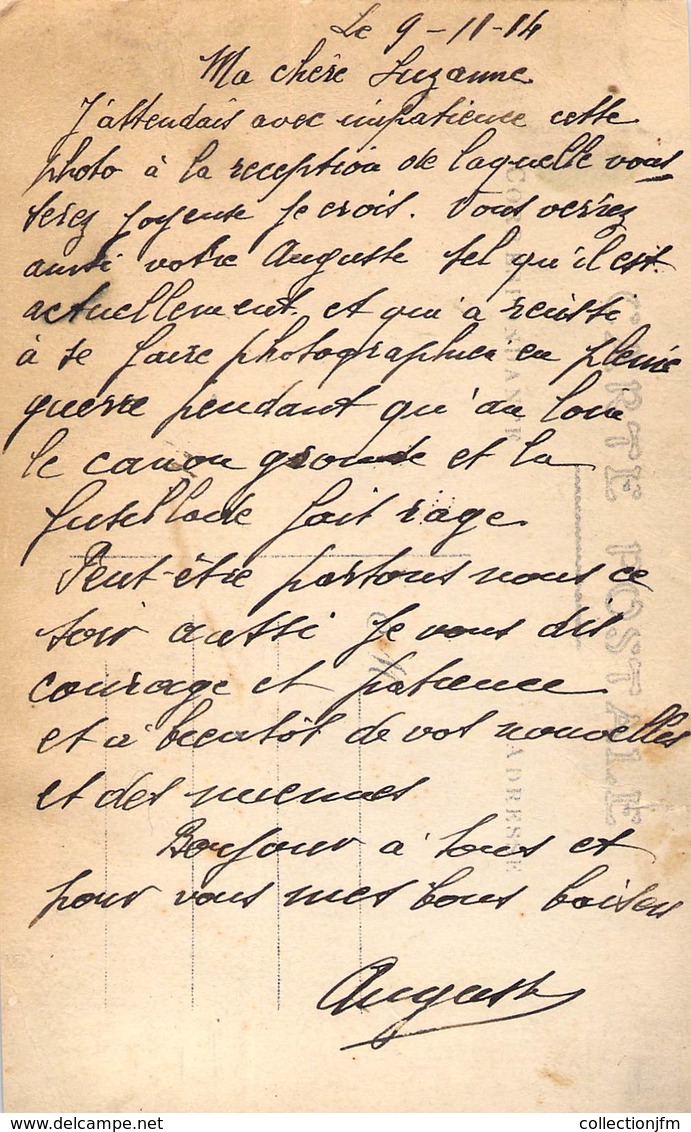 Le 9-11-14
Ma chère Suzanne
J'attendais avec impatience cette
photo à la reception de laquelle vous
serez joyeuse je crois. Vous verrez
aussi votre Auguste tel qu'il est
actuellement et qui a réussi
à se faire photographier en pleine
guerre pendant qu'au loin
le canon gronde et la
fusillade fait rage
Peut-être partons nous ce
soir aussi je vous dis
courage et patience
et à bientôt de vos nouvelles
et des miennes
Bonjour à tous et
pour vous mes bons baisers
Auguste
CARTE POSTALE
CORRESPONDANCE
ADRESSE
collectionjfm